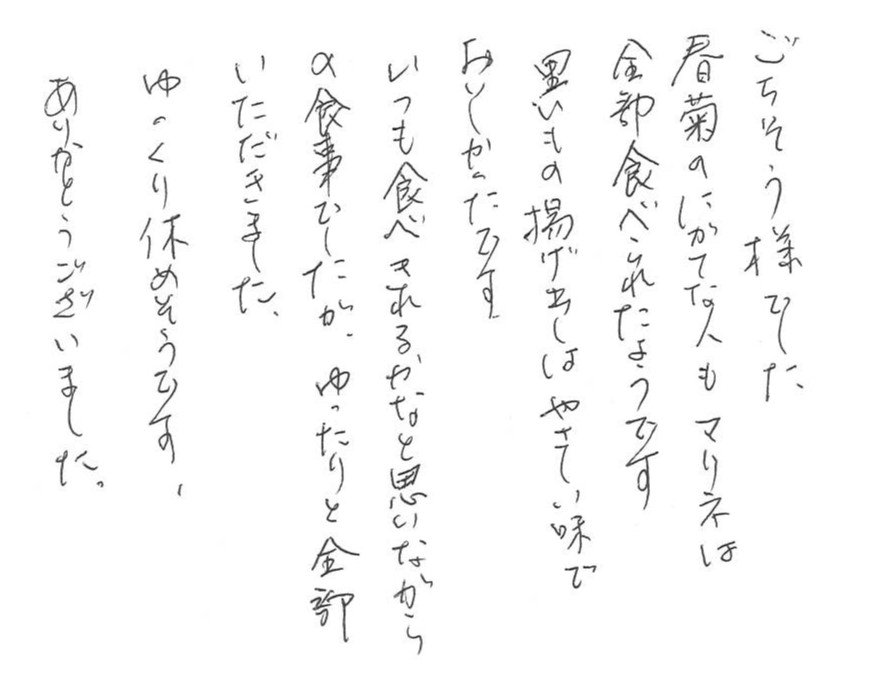 ごちそう様でした
春菊のにがてな人もマリネは
全部食べられたようです
里いもの揚げ出しはやさしい味で
おいしかったです
いつも食べきれるかなと思いながら
の食事でしたが、ゆったりと全部
いただきました、
ゆっくり休めそうです、
ありがとうございました。